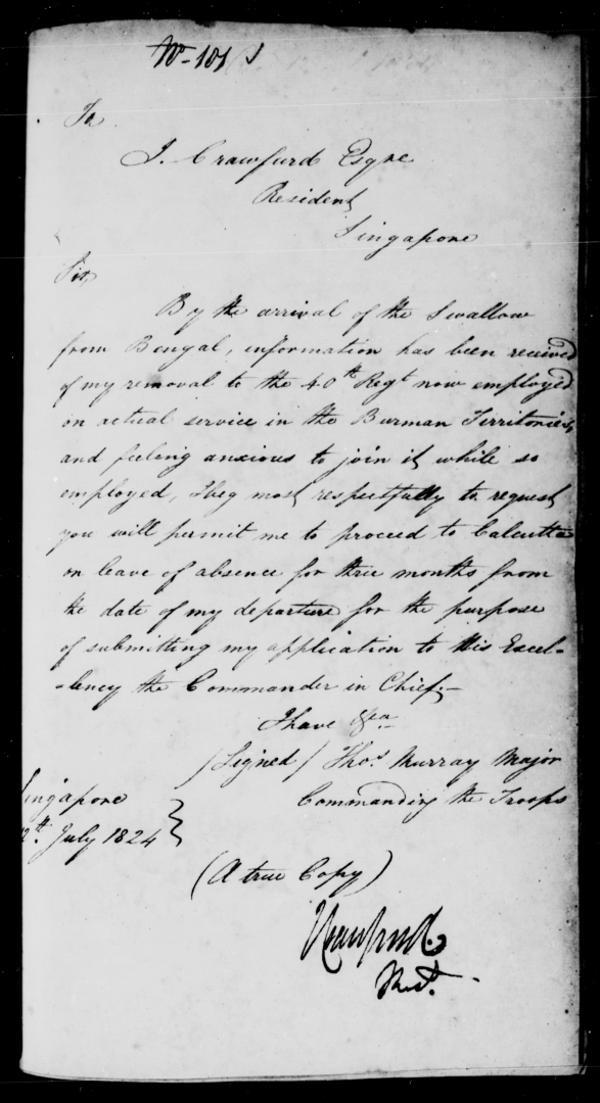 No. 101
To
J. Crawfurd Esqre
Resident
Singapore
Sir,
By the arrival of the Swallow
from Bengal, information has been received
of my removal to the 40th Regt now employed
on actual service in the Burman Territories,
and feeling anxious to join it while so
employed, I beg most respectfully to request
you will permit me to proceed to Calcutta
on leave of absence for three months from
the date of my departure for the purpose
of submitting my application to His Excel-
-lency the Commander in Chief.-
I have &ca
/Signed/ Thos. Murray Major
Commanding the Troops
Singapore
July 1824
(A true Copy)
Crawfurd
Resdt.